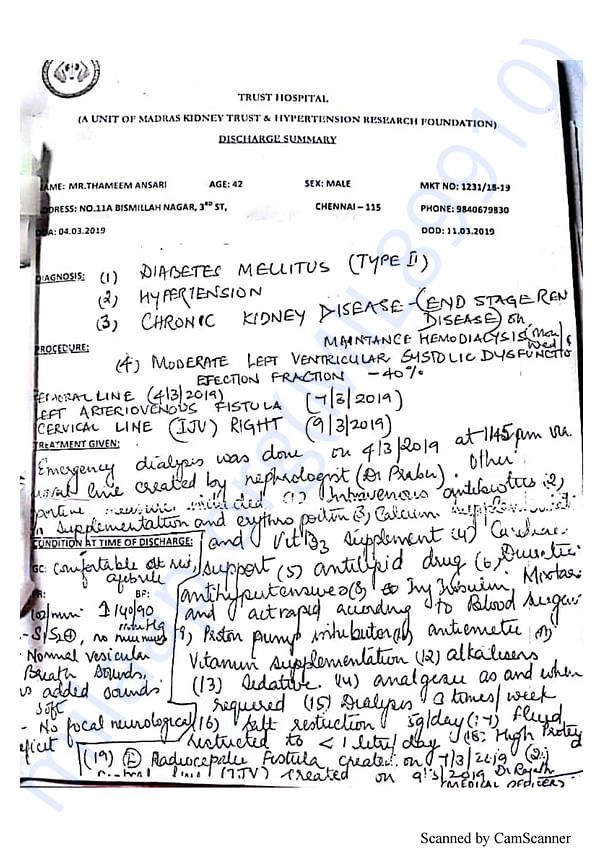 TRUST HOSPITAL
(A UNIT OF MADRAS KIDNEY TRUST & HYPERTENSION RESEARCH FOUNDATION)
DISCHARGE SUMMARY
AME: MR.THAMEEM ANSARI AGE: 42 SEX: MALE MKT NO: 1231/18-19
DRESS: NO.11A BISMILLAH NAGAR, 3RD ST, CHENNAI – 115 PHONE: 9840679830
OA: 04.03.2019 DOD: 11.03.2019
DIAGNOSIS: (1) DIABETES MELLITUS (TYPE II)
(2) HYPERTENSION
(3) CHRONIC KIDNEY DISEASE - (END STAGE REN
DISEASE) on
MAINTANCE HEMODIALYSIS (Mon/
Wed/
PROCEDURE:
(4) MODERATE LEFT VENTRICULAR SYSTOLIC DYSFUNCTIO
EJECTION FRACTION - 40%
FEMORAL LINE (4/3/2019)
LEFT ARTERIOVENOUS FISTULA (7/3/2019)
CERVICAL LINE (IJV) RIGHT (9/3/2019)
TREATMENT GIVEN:
Emergency dialysis was done on 4/3/2019 at 1145pm via
line created by nephrologist (Dr Prabu). Other
(1) Intravenous antibiotics (2)
Supplementation and erythropoitin (3) Calcium
and Vit D3 supplement (4) Cardiac
support (5) antilipid drug (6) Diuretic
antihypertensives (8) Inj Insulin Mixtard
and actrapid according to Blood sugar
9) Proton pump inhibitor antiemetic
Vitamin supplementation (12) alkalisers
(13) Sedative (14) analgesic as and when
required (15) Dialysis 3 times/week
(16) Salt restriction 5g/day (17) Fluid
restricted to < 1 litre/day (18) High Protein
(19) Radiocepalic Fistula created on 7/3/2019
line (IJV) created on 9/3/2019
CONDITION AT TIME OF DISCHARGE:
GC: Comfortable at rest,
afebrile
PR: BP:
102/min 140/90
mmHg
S1S2, no murmurs
Normal vesicular
Breath sounds,
added sounds
soft
- No focal neurological
eficit
MEDICAL OFFICERS
milaap.org(MIL89910)
Scanned by CamScanner